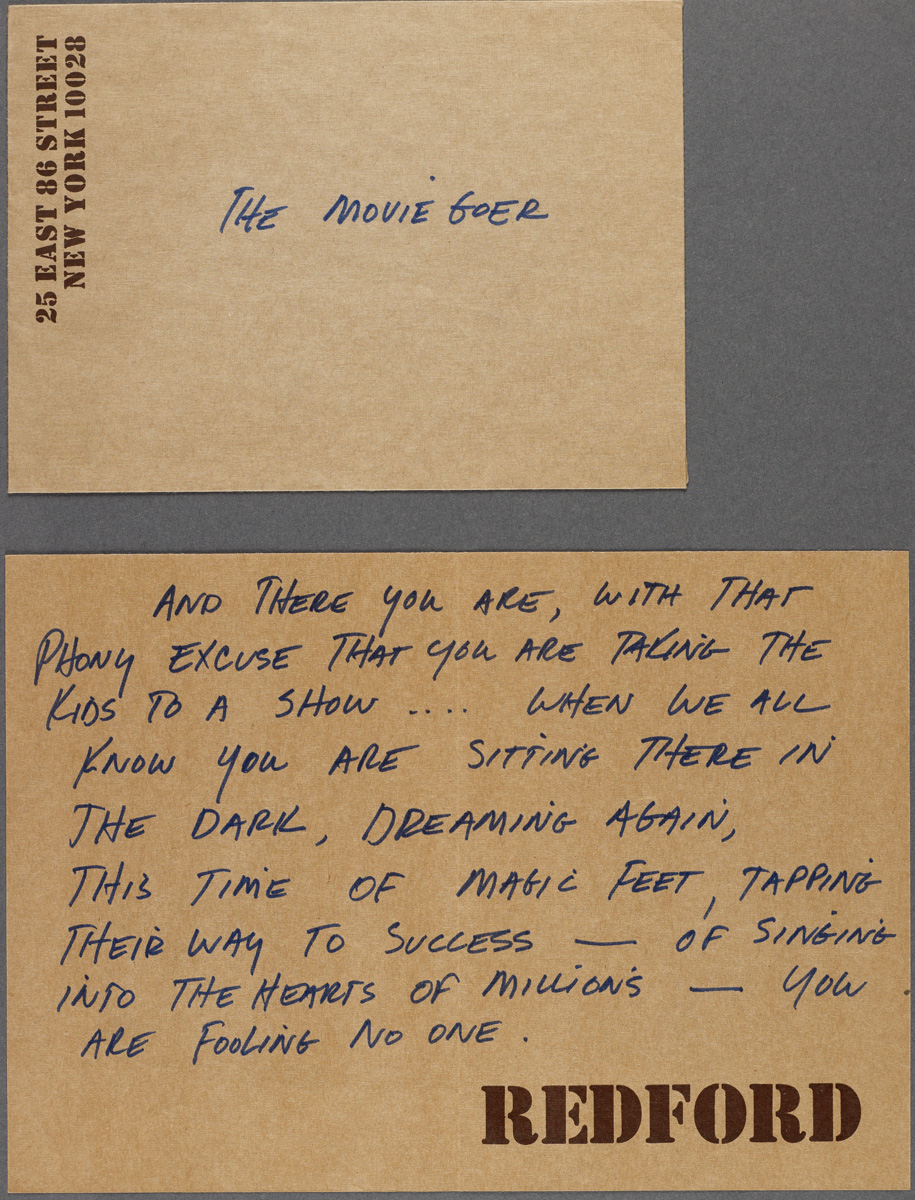 25 EAST 86 STREET
NEW YORK 10028
THE MOVIE GOER
AND THERE YOU ARE, WITH THAT
PHONY EXCUSE THAT YOU ARE TAKING THE
KIDS TO A SHOW .... WHEN WE ALL
KNOW YOU ARE SITTING THERE IN
THE DARK, DREAMING AGAIN,
THIS TIME OF MAGIC FEET, TAPPING
THEIR WAY TO SUCCESS — OF SINGING
INTO THE HEARTS OF MILLIONS — YOU
ARE FOOLING NO ONE.
REDFORD